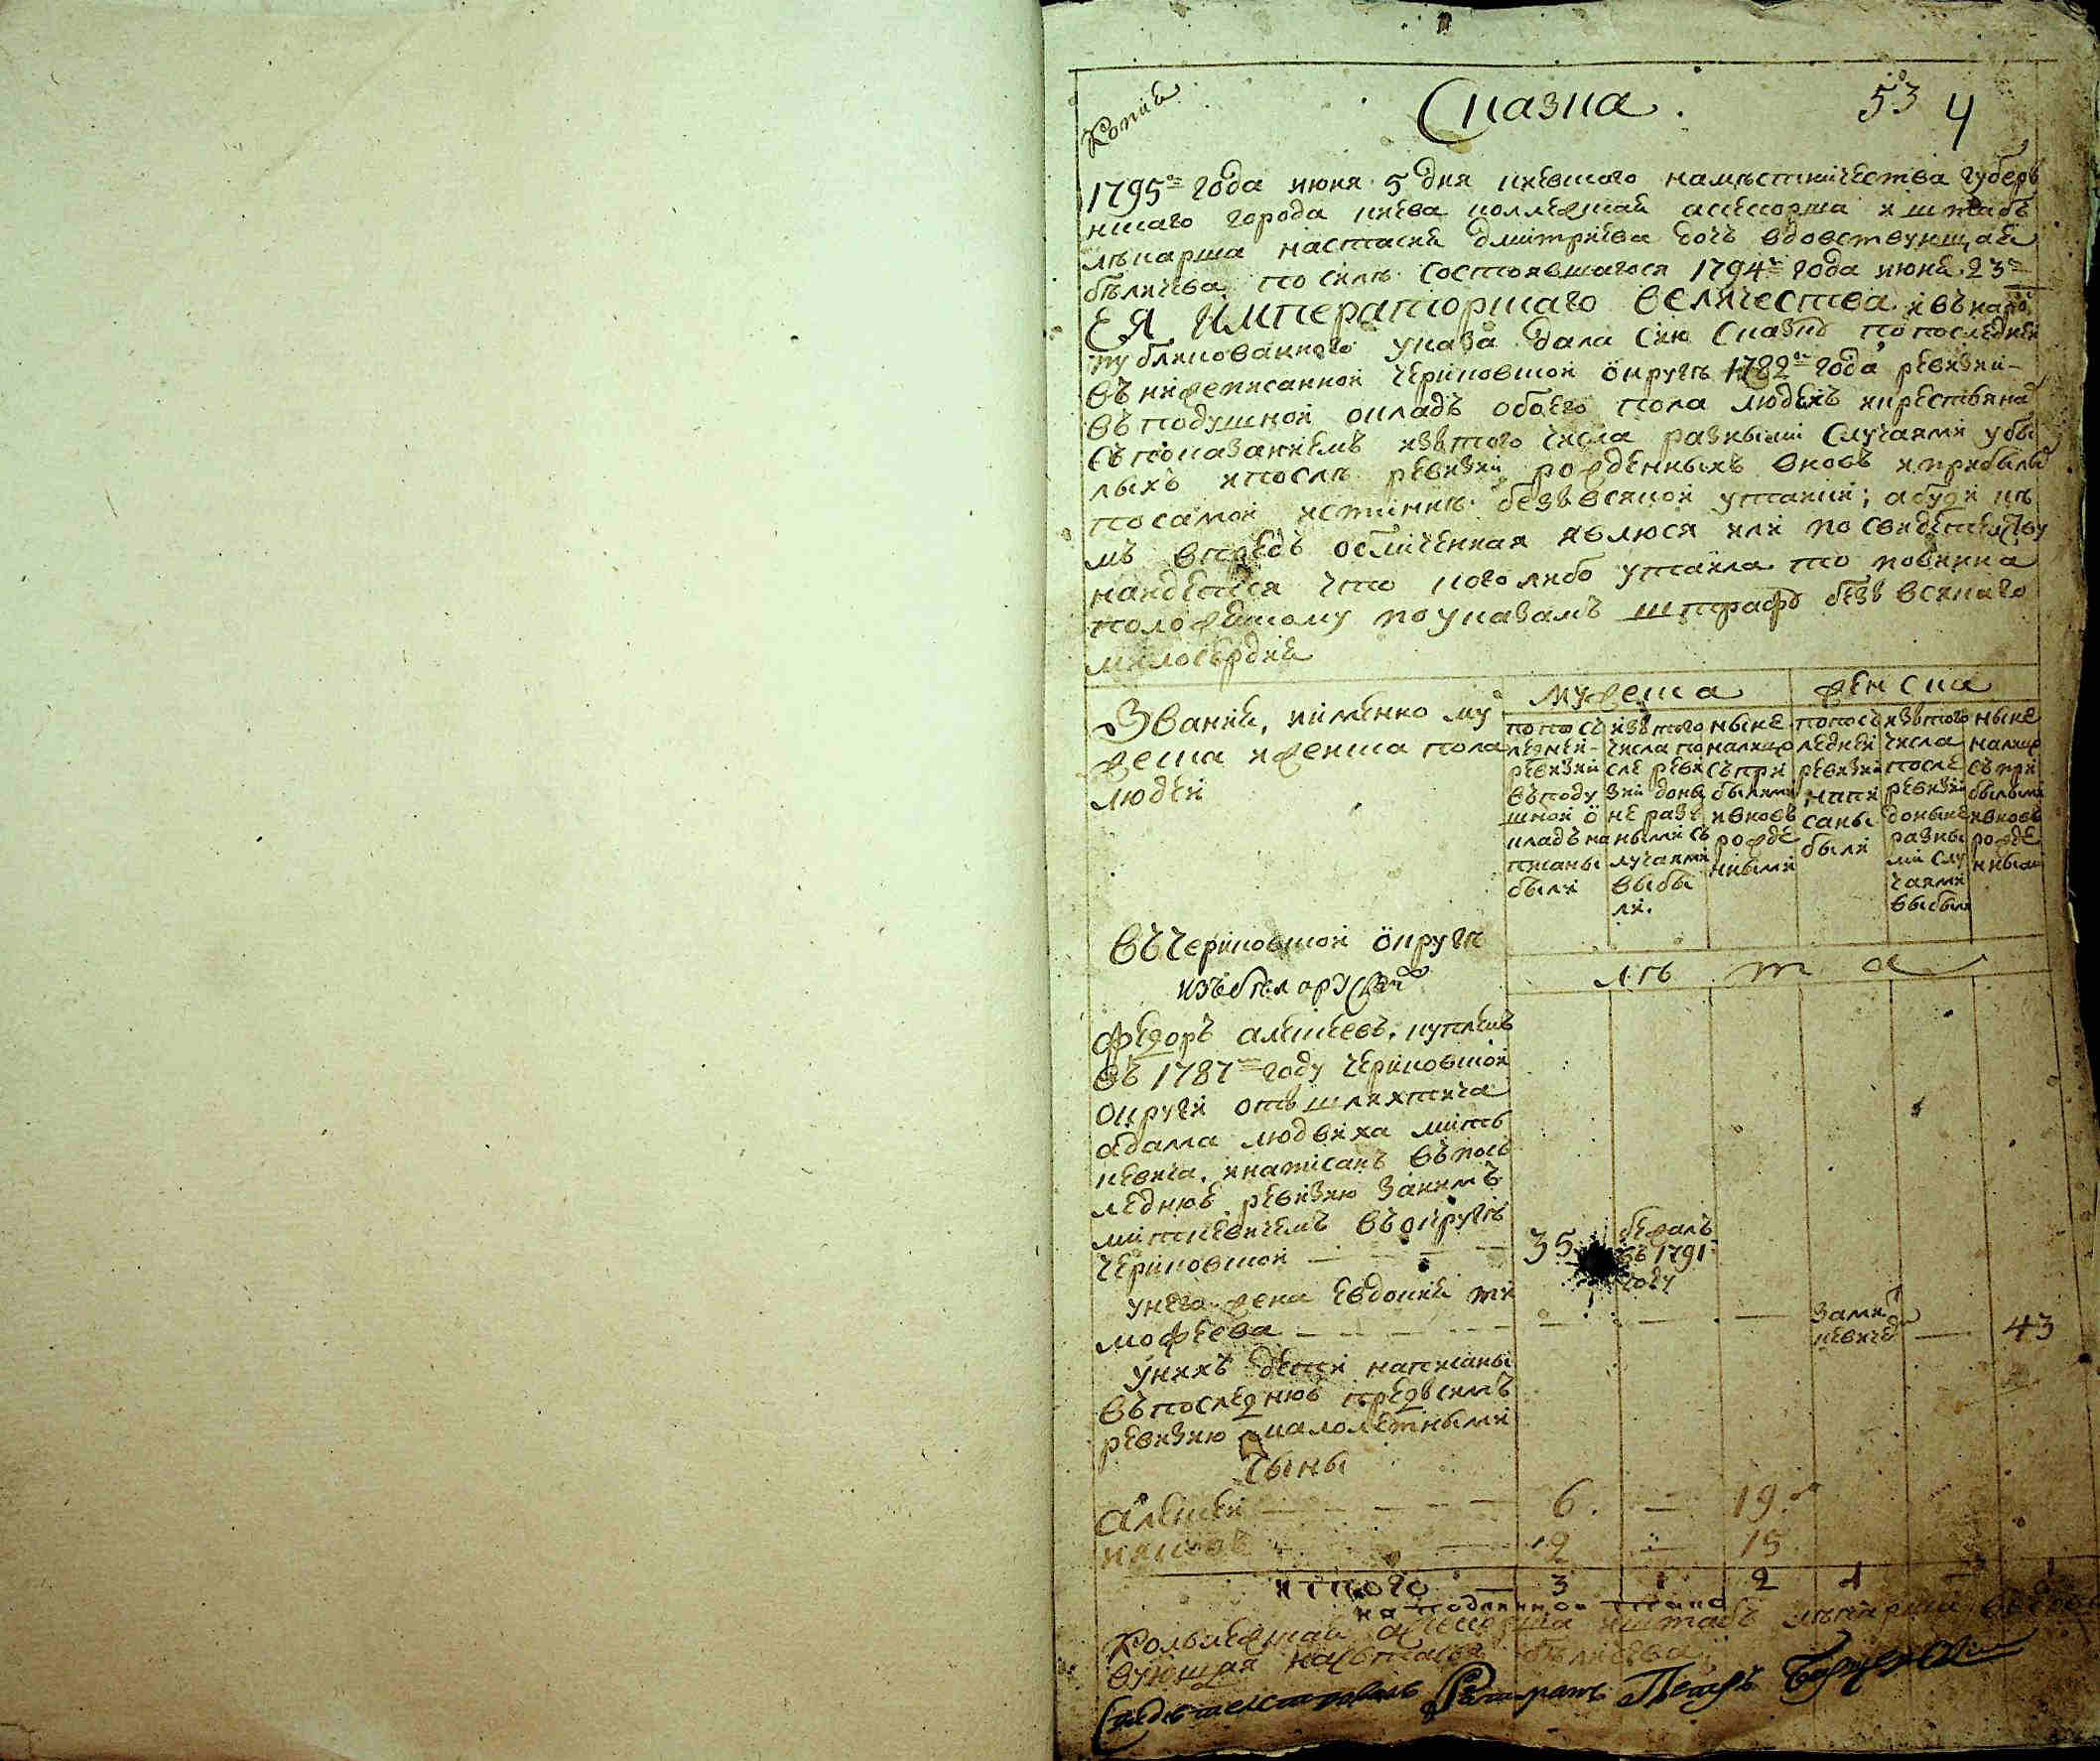 Копия
Сказка.
53 4
1795го года июня 5 дня киевского наместничества губерн
нскаго города киева коллежская асессорша и штабъ
лѣкарша настасия дмитриева дочь вдовствующая
бѣличева по силѣ состоявшагося 1794го года июня 23го
ЕЯ Императорскаго величества и въ народ
публикованного указа дала сию сказку о по последней
въ нижеписанной черіковской округѣ 1782го года ревизии
въ подушной окладъ обоего пола людехъ и крестьянахъ
съ показаниемъ изъ того числа разными случаями убы
лыхъ и послѣ ревизии рожденныхъ вновь и прибылы
по самой истинне безъ всякой утайки; а буде кѣ
мъ впредь обличенная явлюся или по свидетельству
найдется что кого либо утаила то повинна
положенному по указамъ штрафу безъ всякаго
милосердия
Звания, и именно му
жеска и женска пола
людей
мужеска
женска
по посл
едней
ревизии
въ поду
шной о
кладъ на
писаны
были
изъ того
числа по
сле реви
зии доны
не разъ
ными сл
учаями
выбы
ли.
ныне
налицо
съ при
былыми
и вновь
рожде
нными
по посл
едней
ревизии
напи
саны
были
изъ того
числа
после
ревизии
доныне
разны
ми слу
чаями
выбыли
ныне
налицо
съ при
былыми
и вновь
рожде
нными
въ черіковской округѣ
лѣта
федоръ алексеевъ, купленъ
въ 1787мъ году черіковской
округи отъ шляхтича
адама людвиха митъ
кевича, и написанъ въ посъ
леднюю ревизию за нимъ
миткевичемъ въ округѣ
черіковской — 35 бежалъ
въ 1791
году
у него жена евдокия ти
мофеева — — — — за мит
кевичем — 43
у нихъ дети написаны
въ последнюю предъ симъ
ревизию малолетными
сыны
алексей — 6. — 19.
яковъ — 2 — 15
итого — 3 1 2 1 — 1
на подлинной тако
Колъежская асессорша и штабъ лѣкарша вдовст
вующая настасья бѣличева
Свидетельствовалъ Регистраторъ Петръ